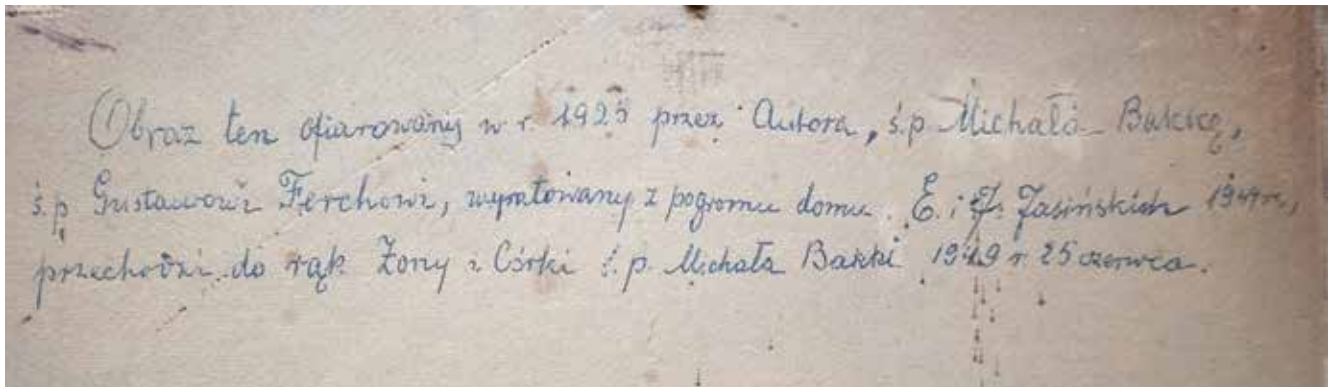 Obraz ten ofiarowany w r. 1925 przez Autora, ś.p. Michała Bakkę,
ś.p. Gustawowi Ferchowi, wyratowany z pogromu domu E. i J. Jasińskich
przechodzi do rąk Żony i Córki ś.p. Michała Bakki 1949 r 25 czerwca.